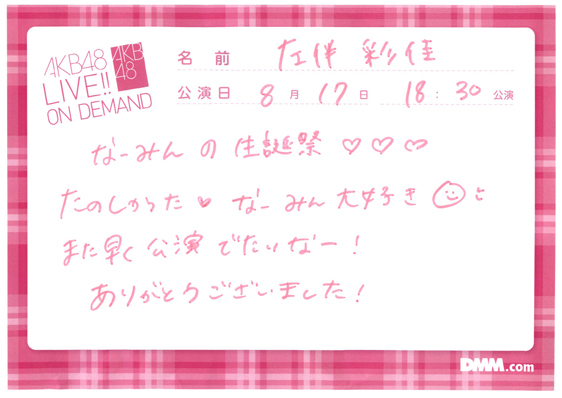 AKB48
LIVE!!
ON DEMAND
AKB
48
名前 佐伴 彩佳
公演日 8月17日 18:30公演
なーみんの生誕祭♡♡♡
たのしかった♥ なーみん大好き
また早く公演でたいなー!
ありがとうございました!
DMM.com